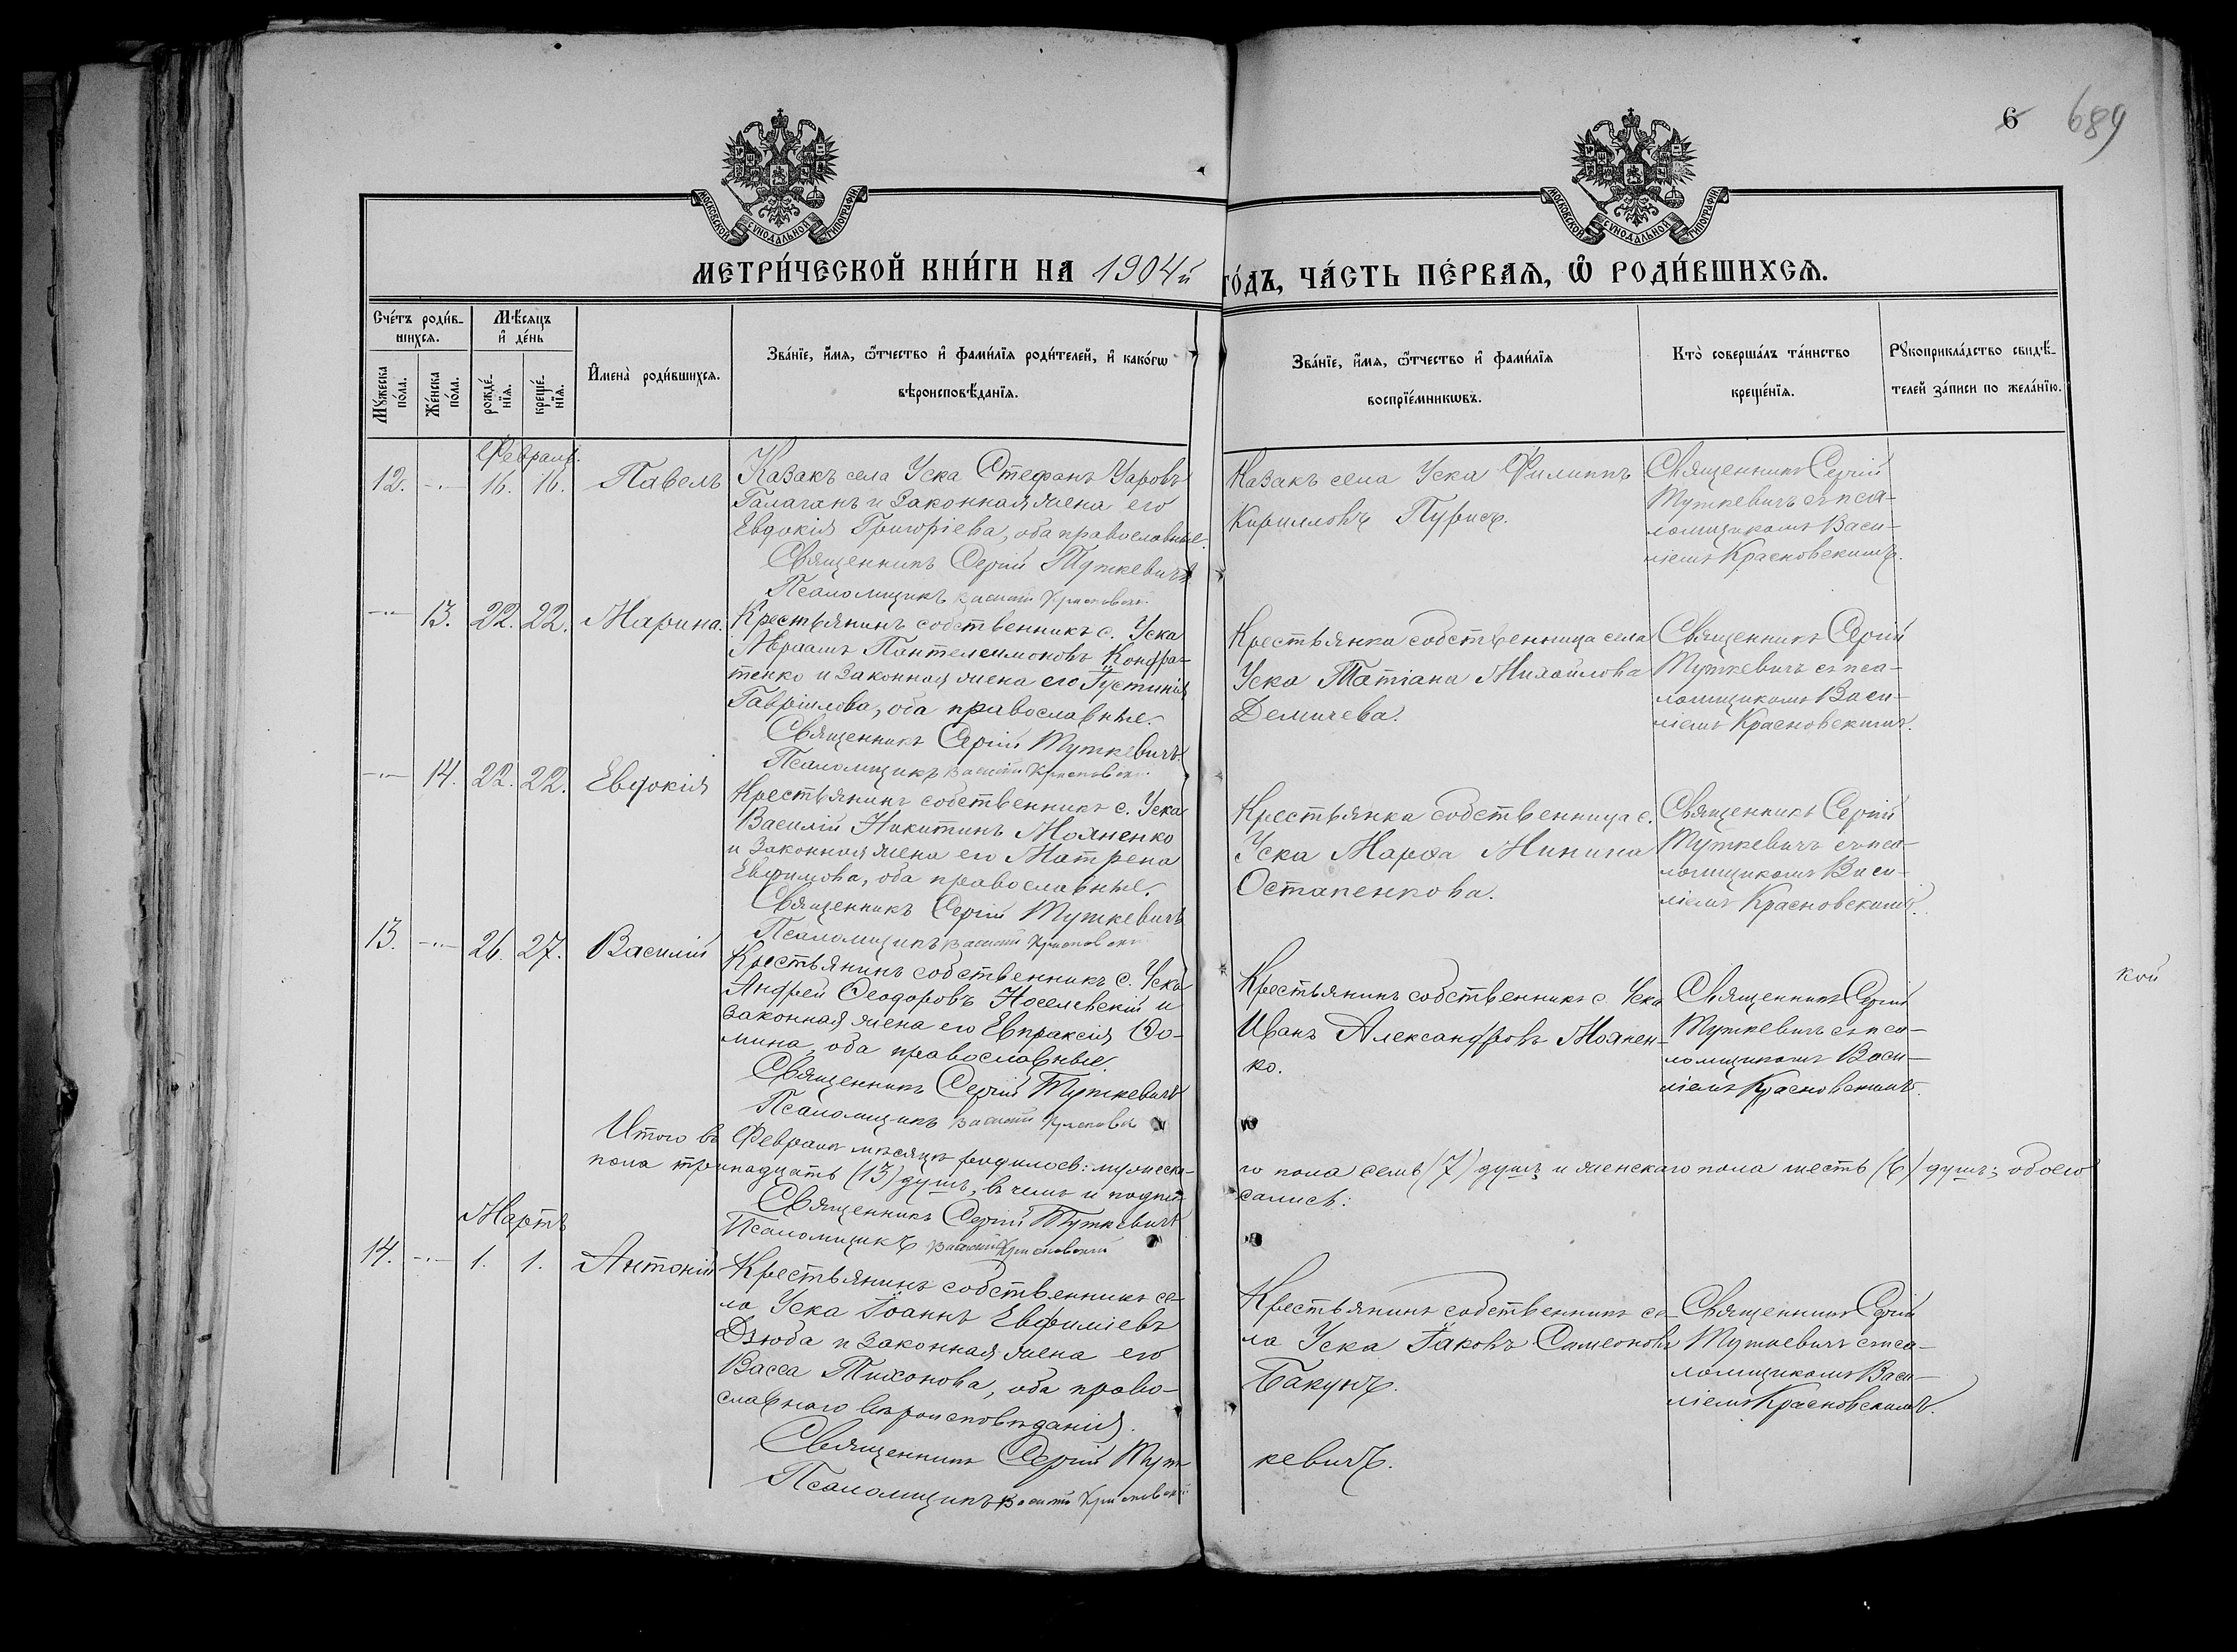 6 689
МОСКОВСКОЙ СѴНОДАЛЬНОЙ ТИПОГРАФІИ
МОСКОВСКОЙ СѴНОДАЛЬНОЙ ТИПОГРАФІИ
МЕТРИ́ЧЕСКОЙ КНИ́ГИ НА 1904й
ГО́ДЪ, ЧА́СТЬ ПЕ́РВАѦ, Ѽ РОДИ́ВШИХСѦ.
Сче́тъ роди́в-
шихсѧ.
Мꙋ́жеска по́ла.
Же́нска по́ла.
Мѣ́сѧцъ и҆ де́нь
рожде́-
нїѧ.
креще́-
нїѧ.
И҆мена̀ роди́вшихсѧ.
Зва́нїе, и҆́мѧ, ѻ҆́тчество и҆ фами́лїѧ роди́телей, и҆ како́гѡ
вѣроисповѣ́данїѧ.
Зва́нїе, и҆́мѧ, ѻ҆́тчество и҆ фами́лїѧ
воспрїе́мникѡвъ.
Кто̀ соверша́лъ та́инство
креще́нїѧ.
Рꙋкоприкла́дство свидѣ́-
телей за́писи по жела́нїю.
Февраль.
12. -„- 16. 16. Павелъ
Казакъ села Уска Стефанъ Уаровъ
Галаганъ и законная жена его
Евдокія Григоріева, оба православные.
Священникъ Сергій Туткевичъ
Псаломщикъ Василій Красновскій
Казакъ села Уска Филиппъ
Кирилловъ Пурисъ.
Священникъ Сергій
Туткевичъ съ пса-
ломщикомъ Васи-
ліемъ Красновскимъ.
-„- 13. 22. 22. Марина.
Крестьянинъ собственникъ с. Уска
Авраамъ Пантелеимоновъ Кондра-
тенко и законная жена его Іустинія
Гавріилова, оба православные.
Священникъ Сергій Туткевичъ
Псаломщикъ Василій Красновскій
Крестьянка собственница села
Уска Татіана Михайлова
Демичева.
Священникъ Сергій
Туткевичъ съ пса-
ломщикомъ Васи-
ліемъ Красновскимъ.
-„- 14. 22. 22. Евдокія
Крестьянинъ собственникъ с. Уска
Василій Никитинъ Можненко
и законная жена его Матрена
Евфимова, оба православные.
Священникъ Сергій Туткевичъ
Псаломщикъ Василій Красновскій
Крестьянка собственница с.
Уска Марѳа Минина
Остапенкова.
Священникъ Сергій
Туткевичъ съ пса-
ломщикомъ Васи-
ліемъ Красновскимъ.
13. -„- 26. 27. Василій
Крестьянинъ собственникъ с. Уска
Андрей Ѳеодоровъ Носелевскій и
законная жена его Евпраксія Ѳо-
мина, оба православные.
Священникъ Сергій Туткевичъ
Псаломщикъ Василій Красновскій
Крестьянинъ собственникъ с. Уска
Иванъ Александровъ Можнен-
ко.
Священникъ Сергій
Туткевичъ съ пса-
ломщикомъ Васи-
ліемъ Красновскимъ.
кой
Итого въ Февралѣ мѣсяцѣ родилось: мужеска-
го пола семь (7) душъ и женскаго пола шесть (6) душъ; обоего
пола тринадцать (13) душъ, въ чемъ и подпи-
сались:
Священникъ Сергій Туткевичъ
Псаломщикъ Василій Красновскій
Мартъ
14. -„- 1. 1. Антоній
Крестьянинъ собственникъ се-
ла Уска Іоаннъ Евфиміевъ
Дзюба и законная жена его
Васса Тихонова, оба право-
славнаго вѣроисповѣданія.
Священникъ Сергій Тут-
кевичъ.
Псаломщикъ Василій Красновскій
Крестьянинъ собственникъ се-
ла Уска Іаковъ Симеоновъ
Бакунъ.
Священникъ Сергій
Туткевичъ съ пса-
ломщикомъ Васи-
ліемъ Красновскимъ.